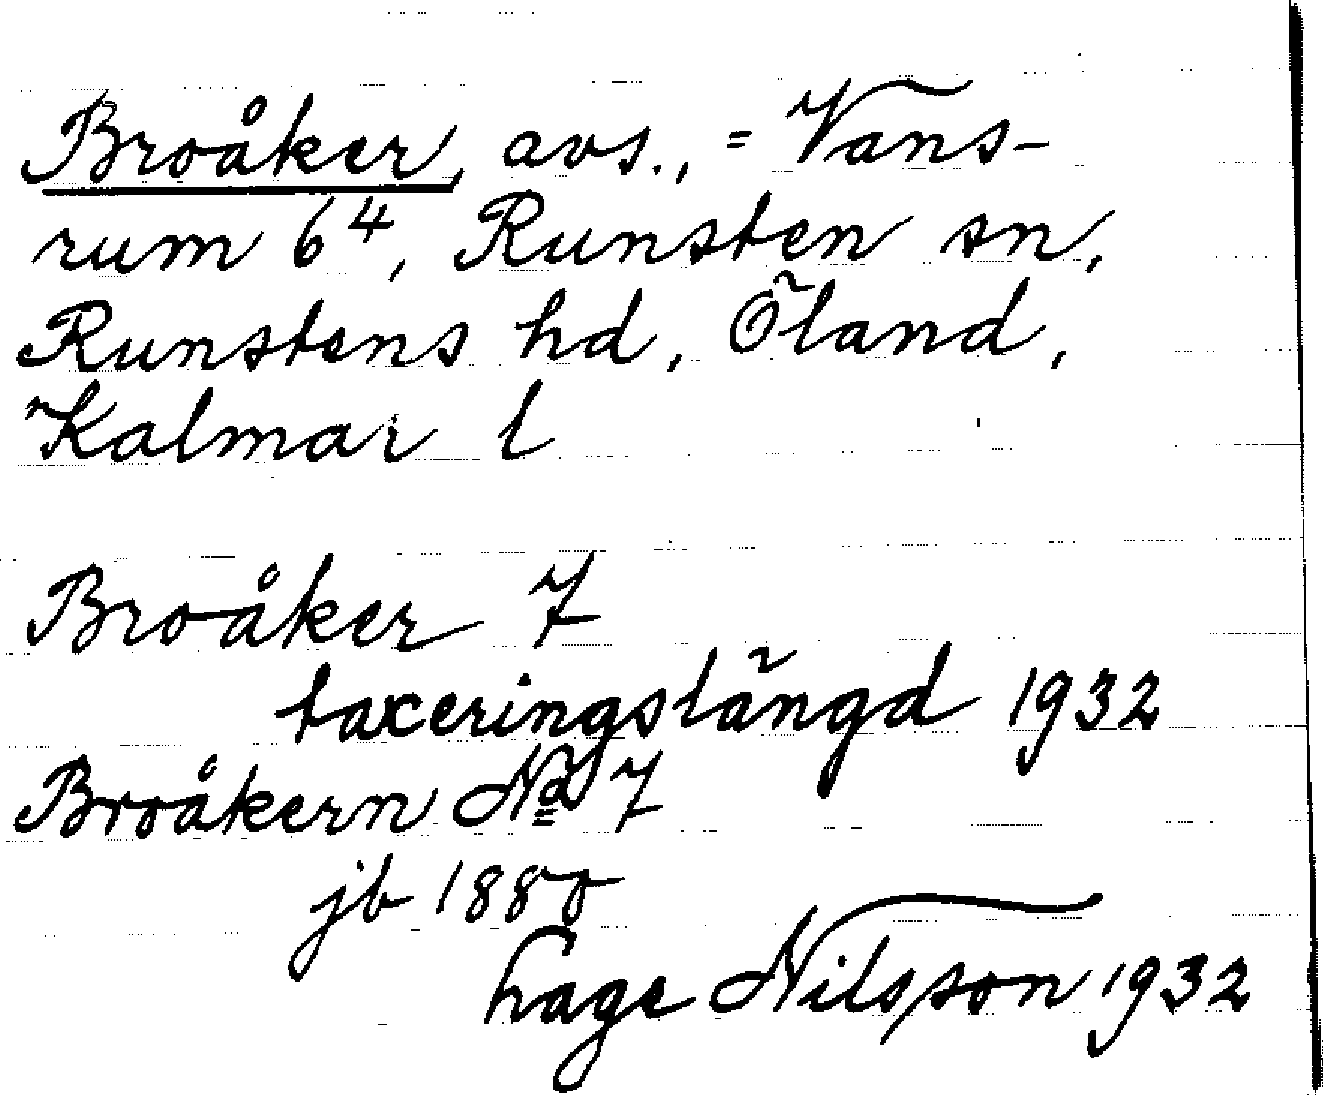 Broåker, avs., = Vans-
rum 6⁴, Runsten sn,
Runstens hd, Öland,
Kalmar l
Broåker 7
taxeringslängd 1932
Broåkern No 7
jb 1880
hage Nilsson 1932